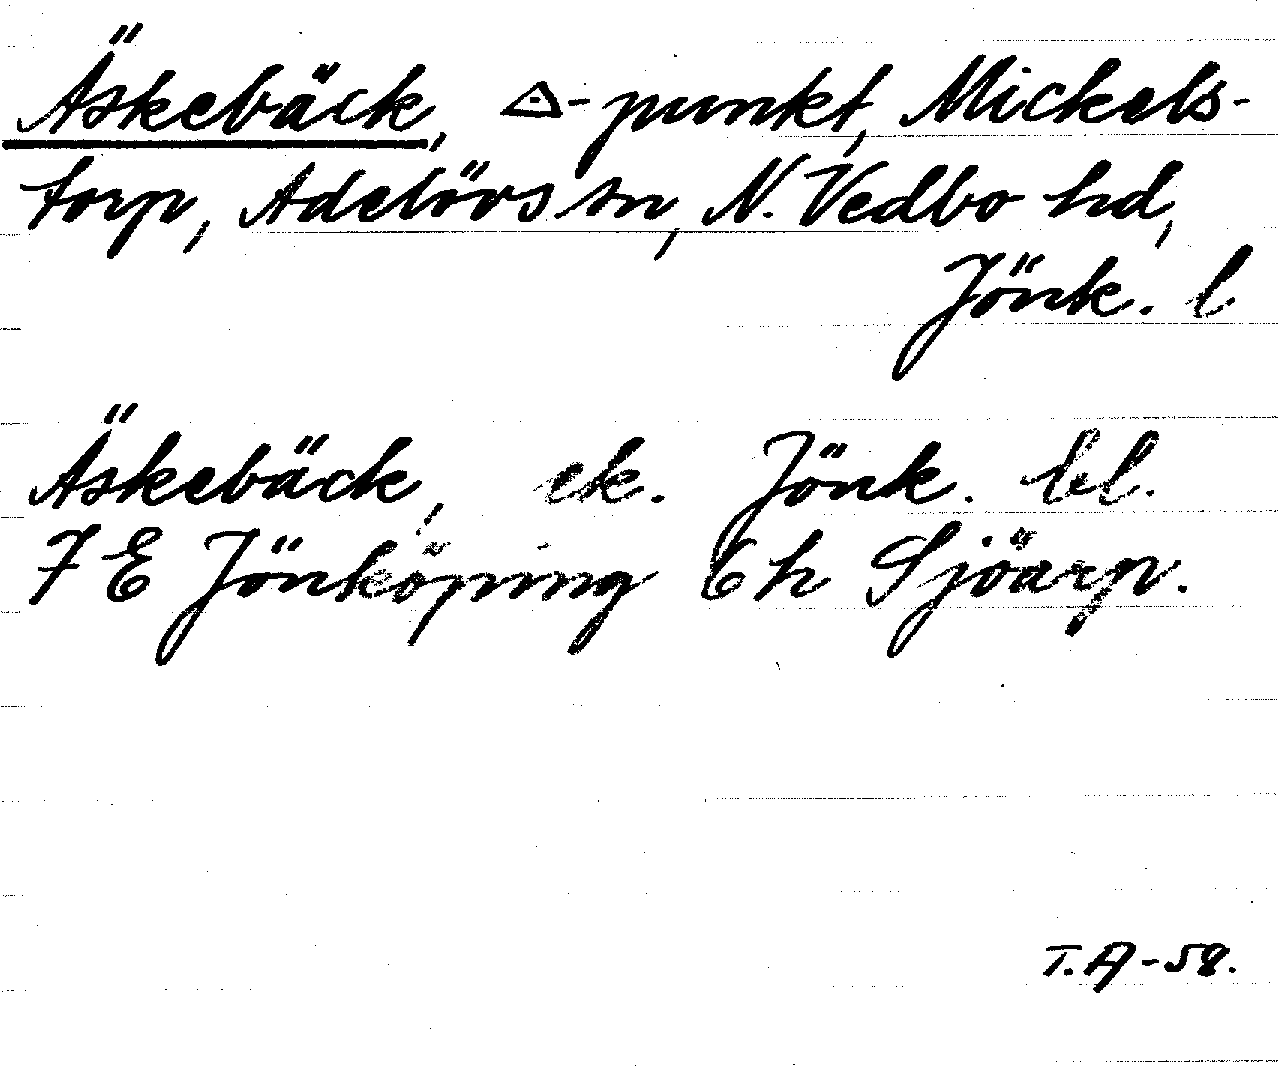 Äskebäck, ⟁-punkt, Mickels-
torp, Adelövs sn, N. Vedbo hd,
Jönk. l
Äskebäck, ek. Jönk. bl.
7 E Jönköping 6 h Sjöarp.
T.A-58.